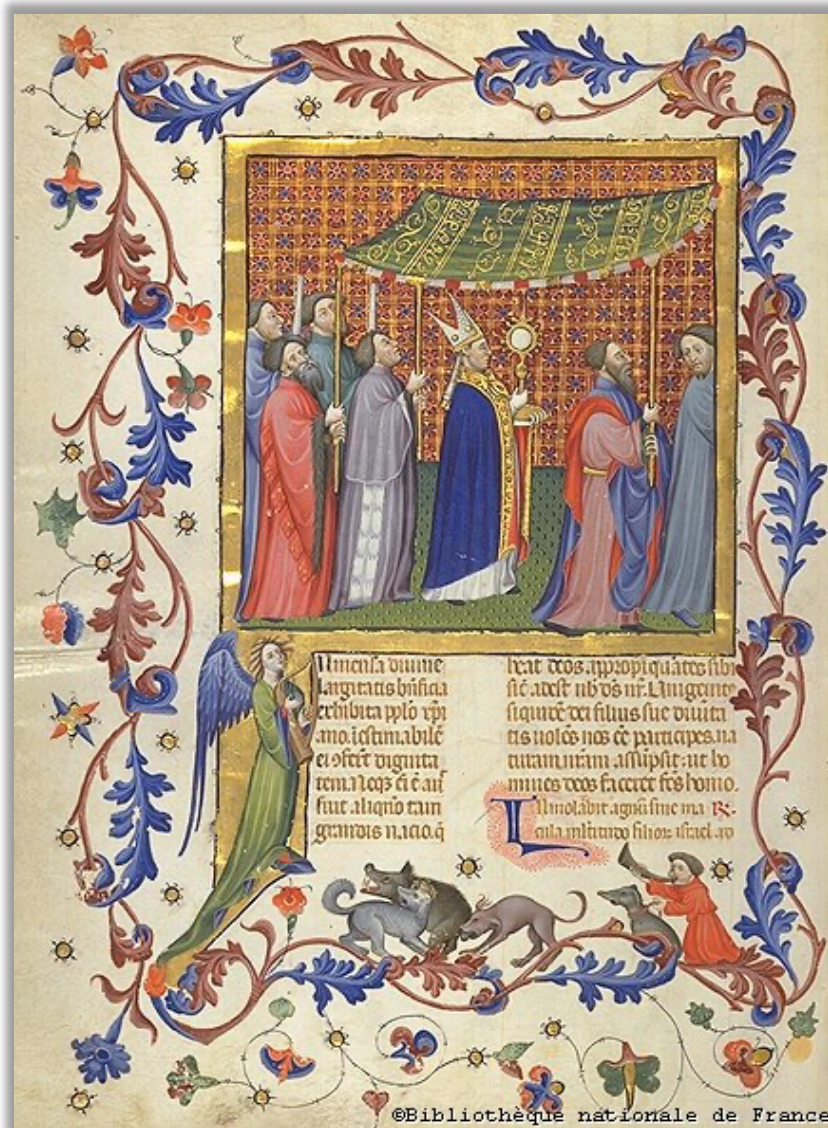 Nmensa diuine
largitatis bn̄ficia
exhibita pplo xp̄i
ano. īestimabilē
ei ɔfert dignita
tem. Neqз ē
fuit aliqn̄o tam
grandis nacio. q̄
beat deos appropīquātes sibi
sic̄ adest nb̄ dſ nr̄. Unigenit
siquidē dei filius sue diuita
tis uolēs nos eē participes. na
turam nr̄am assūpsit: ut ho
mines deos faceret fc̄s homo.
Immolabit agnū sine ma R.
cula filioꝝ israel
©Bibliothèque nationale de France